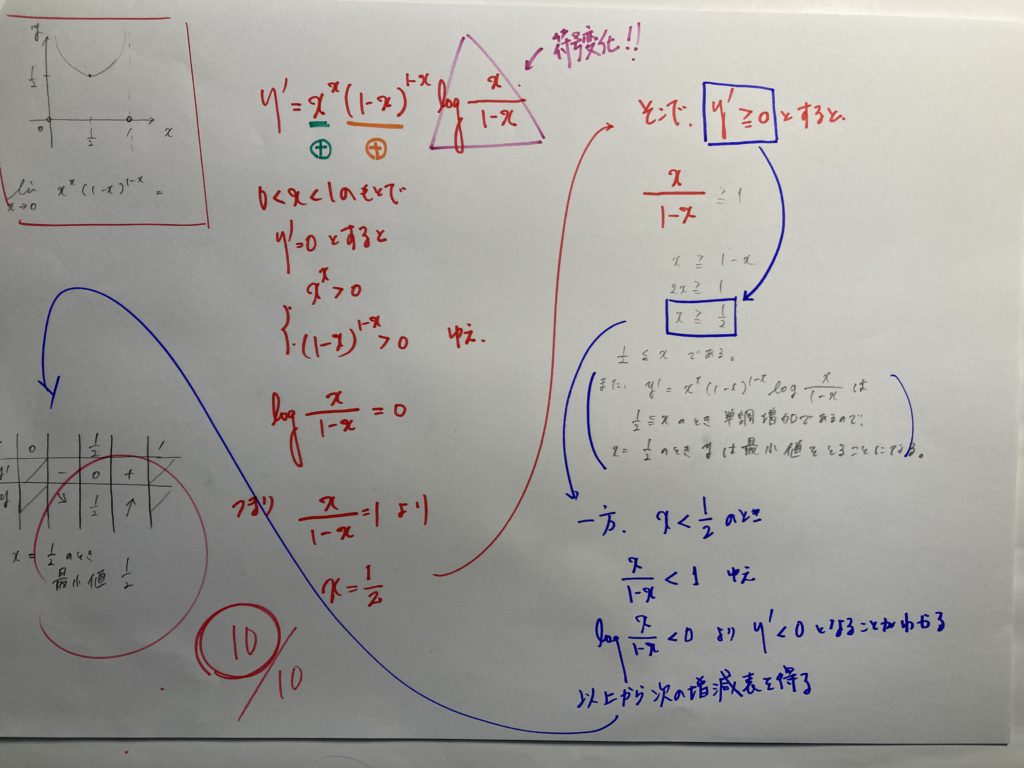 y
1/2
0
1/2
1
x
lim x→0 x^x (1-x)^{1-x} =
y' = x^x (1-x)^{1-x} log x/(1-x)
⊕ ⊕
符号変化!!
0<x<1のもとで
y'=0 とすると
x^x > 0
(1-x)^{1-x} > 0 ゆえ.
log x/(1-x) = 0
つまり x/(1-x) = 1 より
x = 1/2
そこで, y' ≧ 0 とすると,
x/(1-x) ≧ 1
x ≧ 1-x
2x ≧ 1
x ≧ 1/2
1/2 ≦ x である。
また, y' = x^x (1-x)^{1-x} log x/(1-x) は
1/2 ≦ x のとき 単調増加であるので,
x = 1/2 のとき yは最小値をとることになる。
一方, x < 1/2 のとき
x/(1-x) < 1 ゆえ
log x/(1-x) < 0 より y' < 0 となることがわかる
以上から次の増減表を得る
0 1/2 1
y' - 0 +
y ↘ 1/2 ↑
x = 1/2 のとき
最小値 1/2
10/10